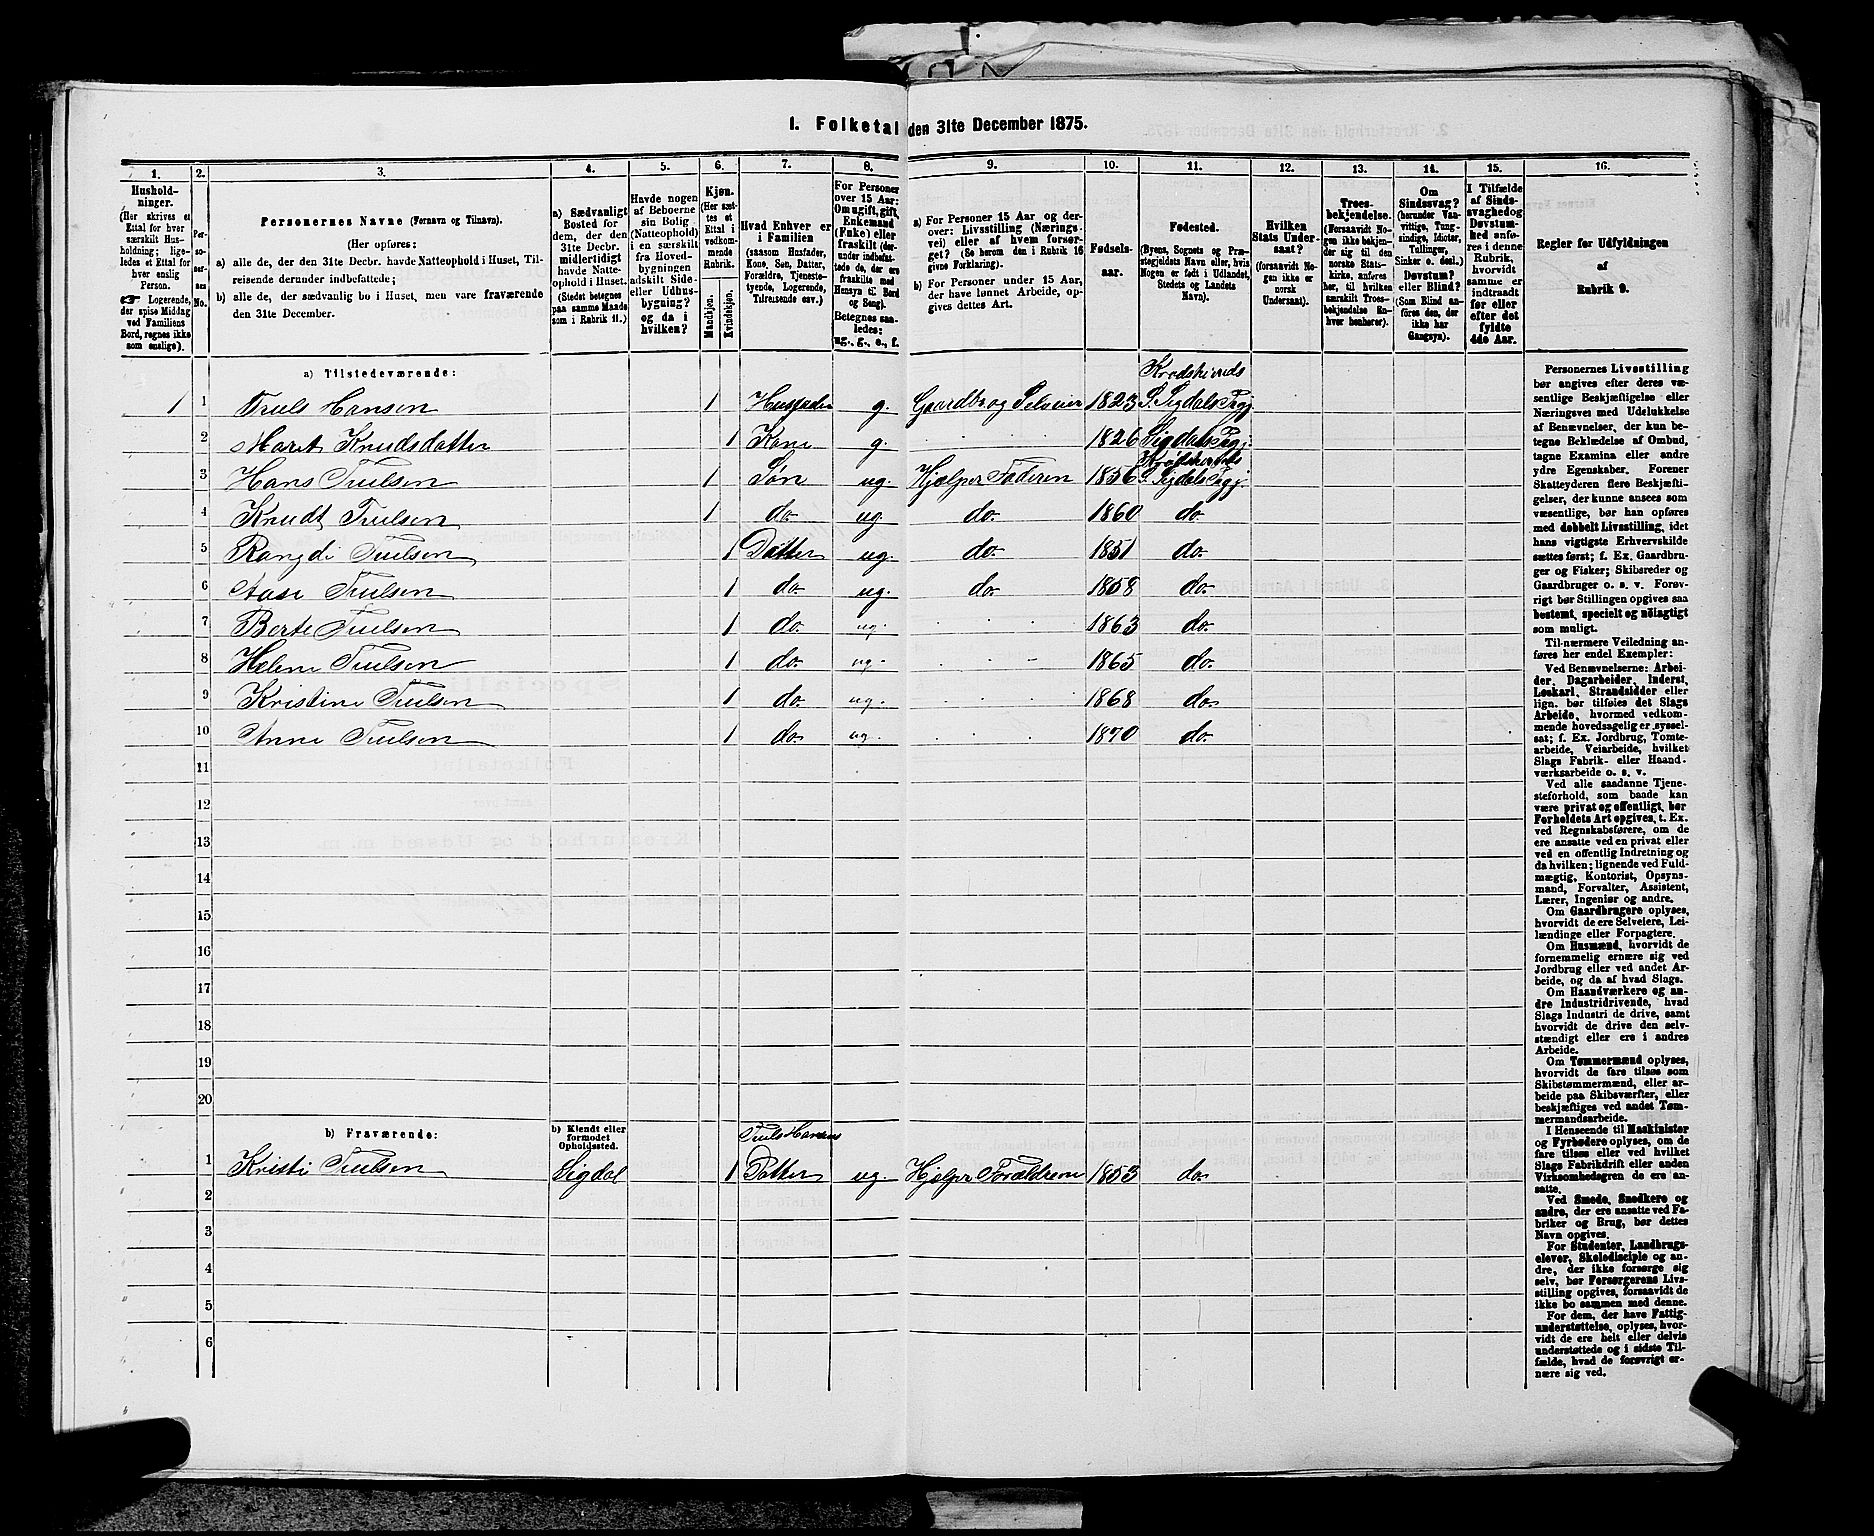 1. Folketal den 31te December 1875.
1. 2. 3. 4. 5. 6. 7. 8. 9. 10. 11. 12. 13. 14. 15. 16.
Hushold-
ninger.
(Her skrives et
Ettal for hver
særskilt Hus-
holdning; lige-
ledes et Ettal for
hver enslig
Person.
☞ Logerende,
der spise Middag
ved Familiens
Bord, regnes ikke
som enslige).
Per-
so-
ner-
nes
No.
Personernes Navne (Fornavn og Tilnavn).
(Her opføres:
a) alle de, der den 31te Decbr. havde Natteophold i Huset, Til-
reisende derunder indbefattede;
b) alle de, der sædvanlig bo i Huset, men vare fraværende
den 31te December.
a) Sædvanligt
Bosted for
dem, der den
31te Decbr.
midlertidigt
havde Natte-
ophold i Huset.
(Stedet betegnes
paa samme Maade
som i Rubrik 11.)
Havde nogen
af Beboerne
sin Bolig
(Natteophold)
i en særskilt
fra Hoved-
bygningen
adskilt Side-
eller Udhus-
bygning?
og da i
hvilken?
Kjøn.
(Her sæt-
tes et
Ettal i
vedkom-
mende
Rubrik.
Mandkjøn.
Kvindekjøn.
Hvad Enhver er
i Familien
(saasom Husfader,
Kone, Søn, Datter,
Forældre, Tjeneste-
tyende, Logerende,
Tilreisende osv.)
For Personer
over 15 Aar:
Om ugift, gift,
Enkemand
(Enke) eller
fraskilt (der-
under indbefat-
tede de, der ere
fraskilte med
Hensyn til Bord
og Seng).
Betegnes saa-
ledes:
ug., g., e., f.
a) For Personer 15 Aar og der-
over: Livsstilling (Nærings-
vei) eller af hvem forsør-
get? (Se herom den i Rubrik 16
givne Forklaring).
b) For Personer under 15 Aar,
der have lønnet Arbeide, op-
gives dettes Art.
Fødsels-
aar.
Fødested.
(Byens, Sognets og Præ-
stegjeldets Navn eller, hvis
Nogen er født i Udlandet,
Stedets og Landets
Navn).
Hvilken
Stats Under-
saat?
(forsaavidt No-
gen ikke er
norsk
Undersaat).
Troes-
bekjendelse.
(Forsaavidt No-
gen ikke bekjen-
der sig til den
norske Stats-
kirke, anføres
her, til hvilken
særskilt Troes-
bekjendelse En-
hver henhører).
Om
Sindssvag?
(herunder Van-
vittige, Tung-
sindige, Idioter,
Tullinger,
Sinker o. desl.).
Døvstum?
eller Blind?
(Som Blind an-
føres den, der
ikke har
Gangsyn).
I Tilfælde
af Sinds-
svaghed og
Døvstum-
hed anfø-
res i denne
Rubrik,
hvorvidt
samme er
indtraadt
før eller
efter det
fyldte
4de Aar.
Regler for Udfyldningen
af
Rubrik 9.
a) Tilstedeværende:
1 1 Truls Hansen 1 Husfader g. Gaardbr. og Selveier 1823 Krødsherreds S. Sigdals Pregj.
2 Maret Knudsdatter 1 Kone g. 1826 Sigdals Pregj.
3 Hans Trulsen 1 Søn ug. Hjælper Faderen 1856 Krødsherreds S. Sigdals Pregj.
4 Knudt Trulsen 1 do. ug. do. 1860 do.
5 Rangdi Trulsen 1 Datter ug. do. 1851 do.
6 Aase Trulsen 1 do. ug. do. 1858 do.
7 Berte Trulsen 1 do. ug. 1863 do.
8 Helene Trulsen 1 do. ug. 1865 do.
9 Kristine Trulsen 1 do. ug. 1868 do.
10 Anne Trulsen 1 do. ug. 1870 do.
11
12
13
14
15
16
17
18
19
20
b) Fraværende:
b) Kjendt eller
formodet
Opholdssted.
Truls Hansens
1 Kristi Trulsen Sigdal 1 Datter ug Hjelper Forældrene 1853 do.
2
3
4
5
6
Personernes Livsstilling
bør angives efter deres væ-
sentlige Beskjæftigelse eller
Næringsvei med Udelukkelse
af Benævnelser, der kun be-
tegne Beklædelse af Ombud,
tagne Examina eller andre
ydre Egenskaber. Forener
Skatteyderen flere Beskjæfti-
gelser, der kunne ansees som
væsentlige, bør han opføres
med dobbelt Livsstilling, idet
hans vigtigste Erhvervskilde
sættes først; f. Ex. Gaardbru-
ger og Fisker; Skibsreder og
Gaardbruger o. s. v. Forøv-
rigt bør Stillingen opgives saa
bestemt, specielt og nøiagtigt
som muligt.
Til nærmere Veiledning an-
føres her endel Exempler:
Ved Benævnelserne: Arbei-
der, Dagarbeider, Inderst,
Løskarl, Strandsidder eller
lign. bør tilføies det Slags
Arbeide, hvormed vedkom-
mende hovedsagelig er syssel-
sat; f. Ex. Jordbrug, Tomte-
arbeide, Veiarbeide, hvilket
Slags Fabrik- eller Haand-
værksarbeide o. s. v.
Ved alle saadanne Tjene-
steforhold, som baade kan
være privat og offentligt, bør
Forholdets Art opgives, t. Ex.
ved Regnskabsførere, om de
ere ansatte ved en privat eller
ved en offentlig Indretning og
da hvilken; lignende ved Fuld-
mægtig, Kontorist, Opsyns-
mand, Forvalter, Assistent,
Lærer, Ingeniør og andre.
Om Gaardbrugere oplyses,
hvorvidt de ere Selveiere, Lei-
lændinge eller Forpagtere.
Om Husmænd, hvorvidt de
fornemmelig ernære sig ved
Jordbrug eller ved andet Ar-
beide, og da af hvad Slags.
Om Haandværkere og an-
dre Industridrivende, hvad
Slags Industri de drive, samt
hvorvidt de drive den selv-
stændigt eller ere i andres
Arbeide.
Om Tømmermænd oplyses,
hvorvidt de fare tilsøs som
Skibstømmermænd, eller ar-
beide paa Skibsværfter, eller
beskjæftiges ved andet Tøm-
mermandsarbeide.
I Henseende til Maskinister
og Fyrbødere oplyses, om de
fare tilsøs eller ved hvilket
Slags Fabrikdrift eller anden
Virksomhedsgren de ere an-
satte.
Ved Smede, Snedkere og
andre, der ere ansatte ved Fa-
briker og Brug, bør dettes
Navn opgives.
For Studenter, Landbrugs-
elever, Skoledisciple og an-
dre, der ikke forsørge sig
selv, bør Forsørgerens Livs-
stilling opgives, forsaavidt de
ikke bo sammen med denne.
For dem, der have Fattig-
understøttelse, oplyses, hvor-
vidt de ere helt eller delvis
understøttede og i sidste Til-
fælde, hvad de forøvrigt er-
nære sig ved.